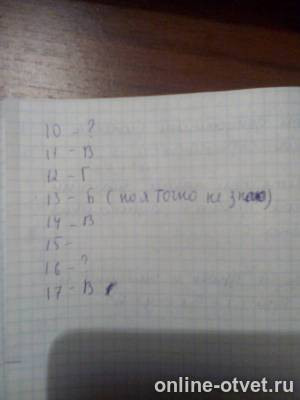 10 - ?
11 - В
12 - Г
13 - Б (но я точно не знаю)
14 - В
15 -
16 - ?
17 - В
online-otvet.ru